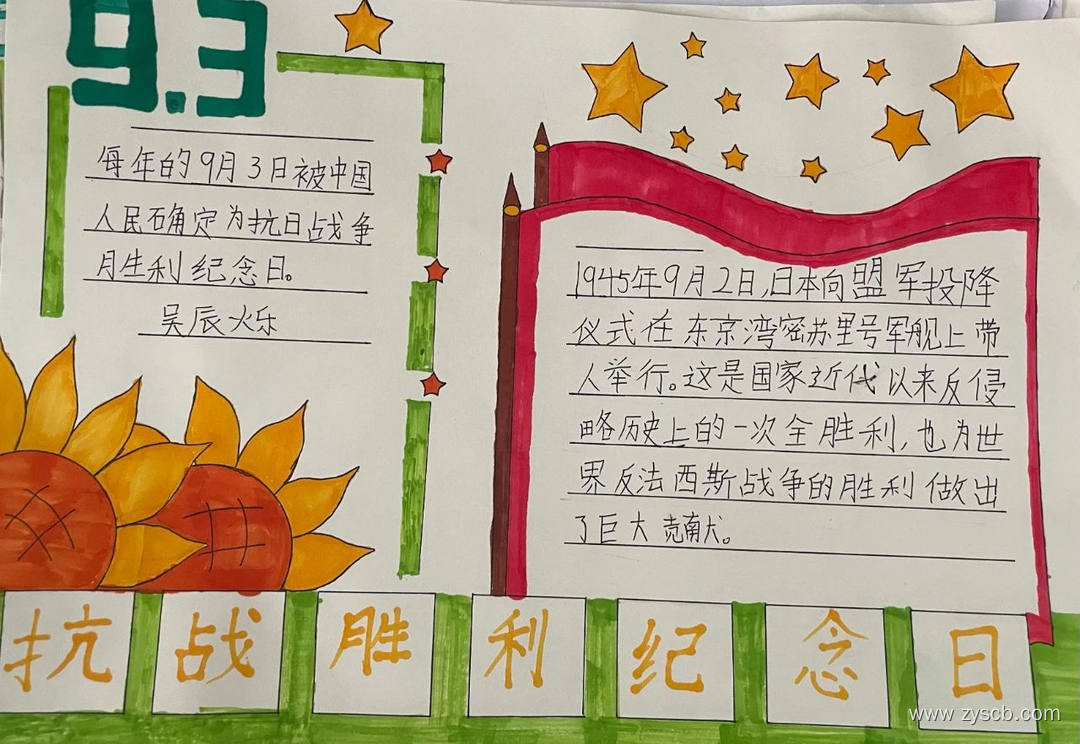 9.3
每年的9月3日被中国
人民确定为抗日战争
胜利纪念日。
吴辰烁
1945年9月2日,日本向盟军投降
仪式在东京湾密苏里号军舰上带
人举行。这是国家近代以来反侵
略历史上的一次全胜利,也为世
界反法西斯战争的胜利做出
了巨大贡献。
抗战胜利纪念日
www.zyscb.com